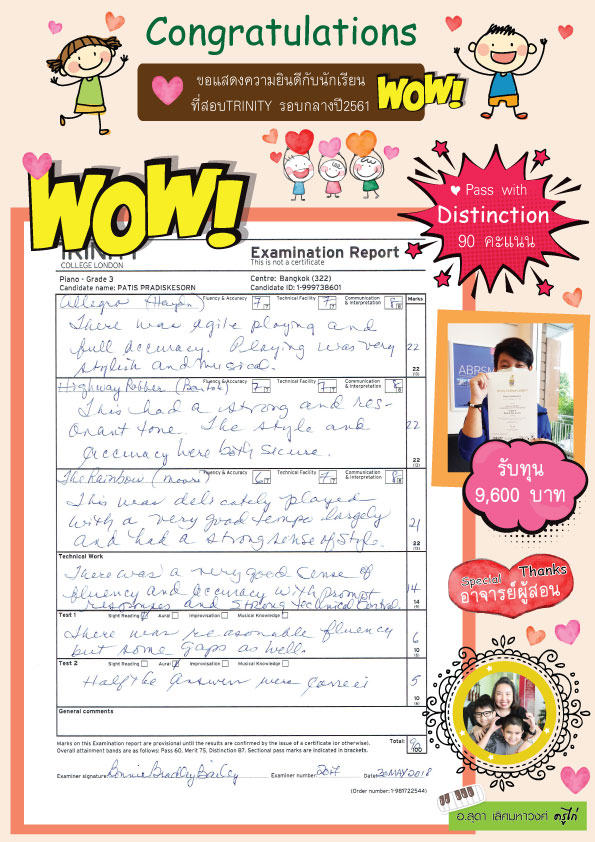 Congratulations
ขอแสดงความยินดีกับนักเรียน
ที่สอบTRINITY รอบกลางปี2561
WOW!
WOW!
Pass with
Distinction
90 คะแนน
TRINITY
COLLEGE LONDON
Examination Report
This is not a certificate
Piano - Grade 3
Centre: Bangkok (322)
Candidate name: PATIS PRADISKESORN
Candidate ID: 1-999738601
Allegro (Haydn) Fluency & Accuracy 7 Technical Facility 7 Communication & Interpretation 8 Marks
There was agile playing and
full accuracy. Playing was very
stylish and musical.
22
22
Highway Robber (Bartok) Fluency & Accuracy 7 Technical Facility 7 Communication & Interpretation 8
This had a strong and res-
onant tone. The style and
accuracy were both secure.
22
22
The Rainbow (Moore) Fluency & Accuracy 6 Technical Facility 7 Communication & Interpretation 8
This was delicately played
with a very good tempo largely
and had a strong sense of style.
21
22
Technical Work
There was a very good sense of
fluency and accuracy with prompt
responses and strong technical control.
14
14
Test 1 Sight Reading Aural Improvisation Musical Knowledge
There was reasonable fluency
but some gaps as well.
6
10
Test 2 Sight Reading Aural Improvisation Musical Knowledge
Half the answers were correct
5
10
General comments
Total: 90
100
Marks on this Examination report are provisional until the results are confirmed by the issue of a certificate (or otherwise).
Overall attainment bands are as follows: Pass 60, Merit 75, Distinction 87. Sectional pass marks are indicated in brackets.
Examiner signature Bonnie Bradley Bailey Examiner number 2017 Date 20 MAY 2018
(Order number: 1-981722544)
ABRSM
รับทุน
9,600 บาท
Special Thanks
อาจารย์ผู้สอน
อ.สุดา เลิศมหาวงศ์ ครูไก่